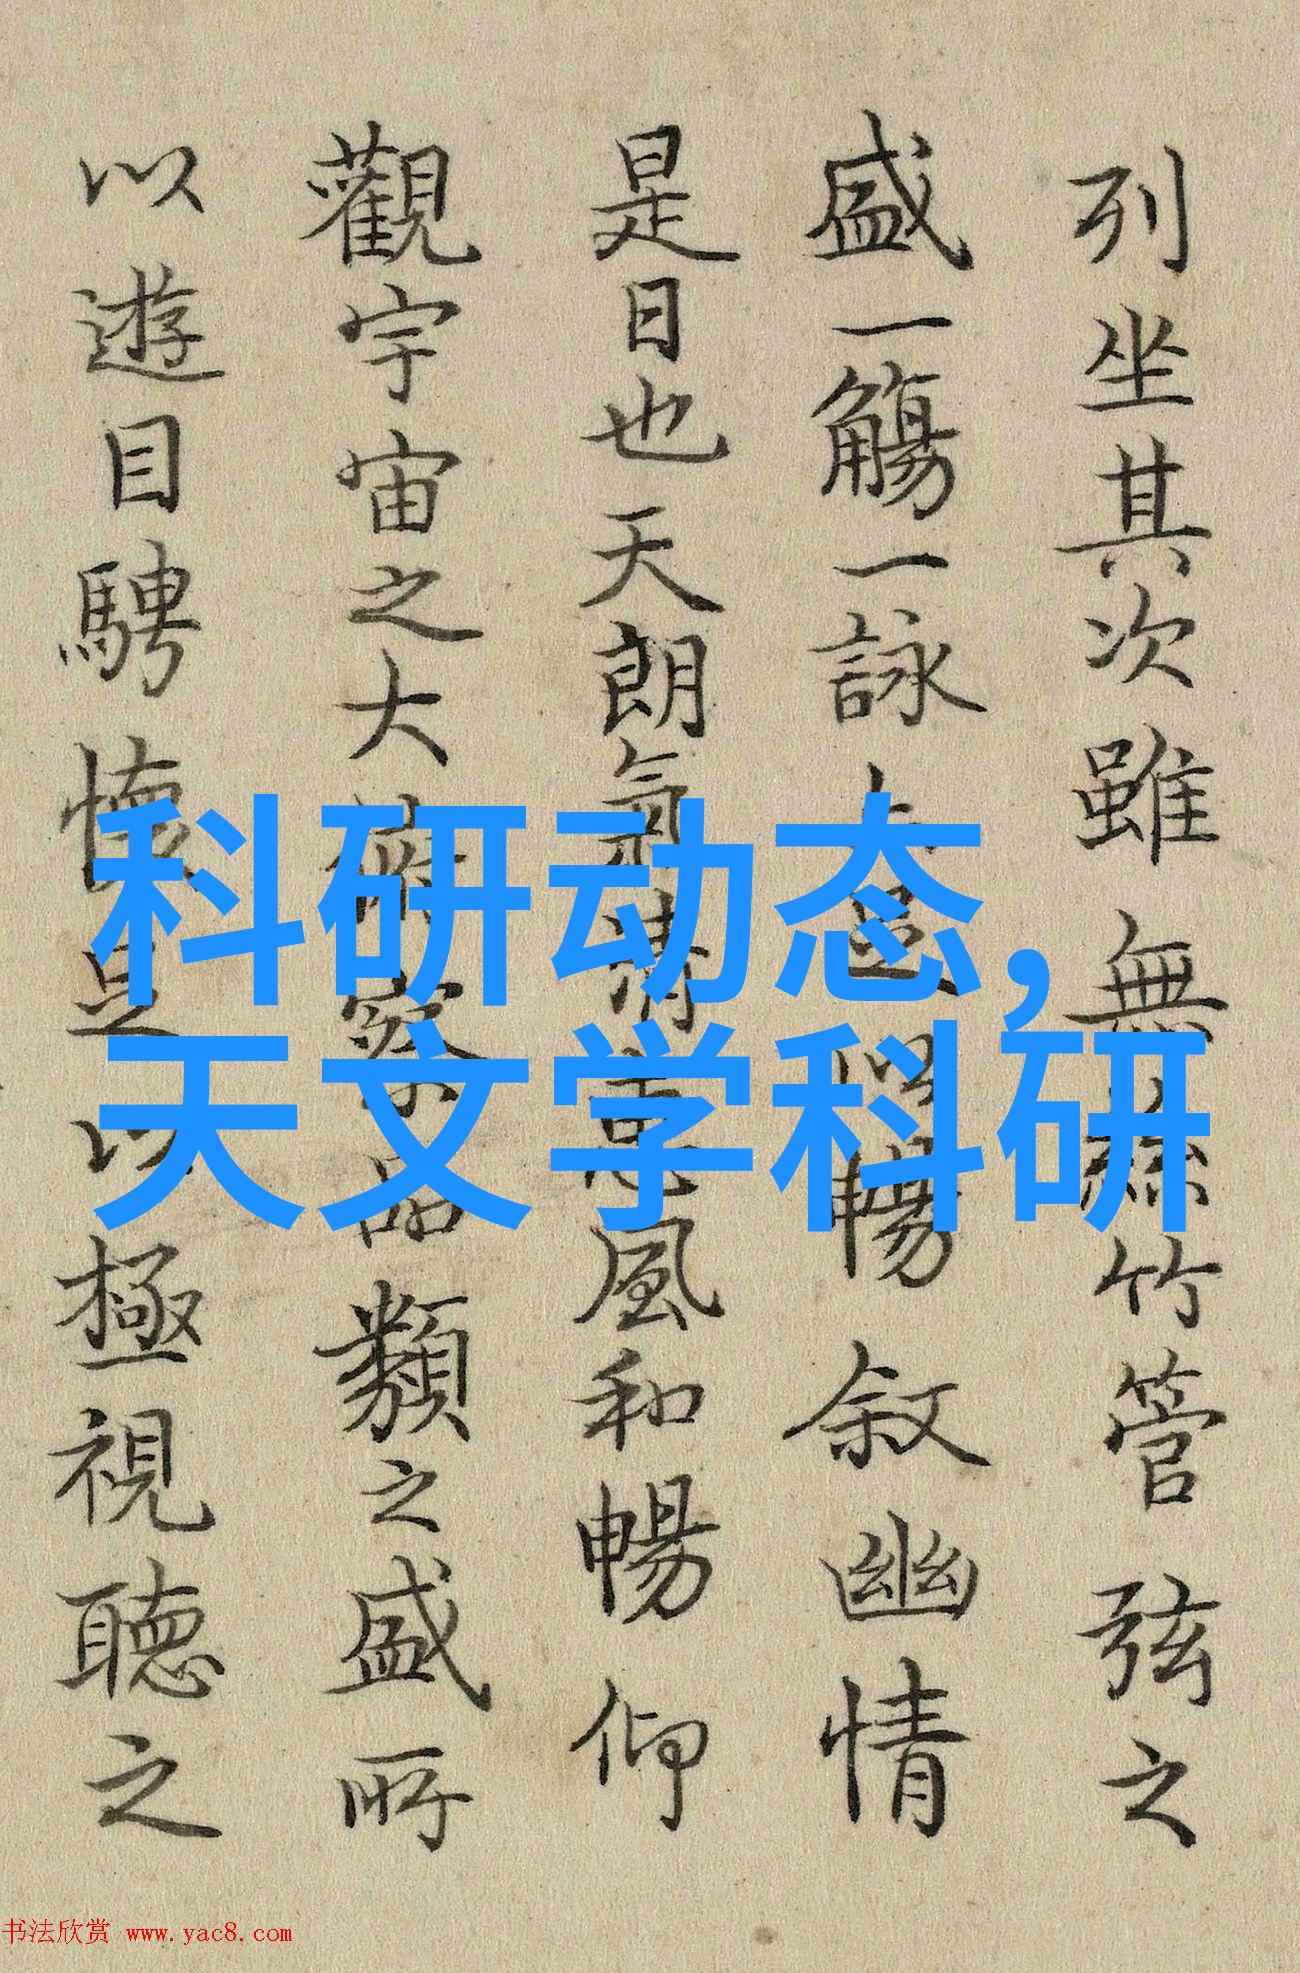 列坐其次雖無絲竹管弦之
盛一觴一詠足以暢叙幽情
是日也天朗氣清惠風和暢仰
觀宇宙之大俯察品類之盛所
以遊目騁懷足以極視聽之
科研动态,
天文学科研
书法欣赏 www.yac8.com